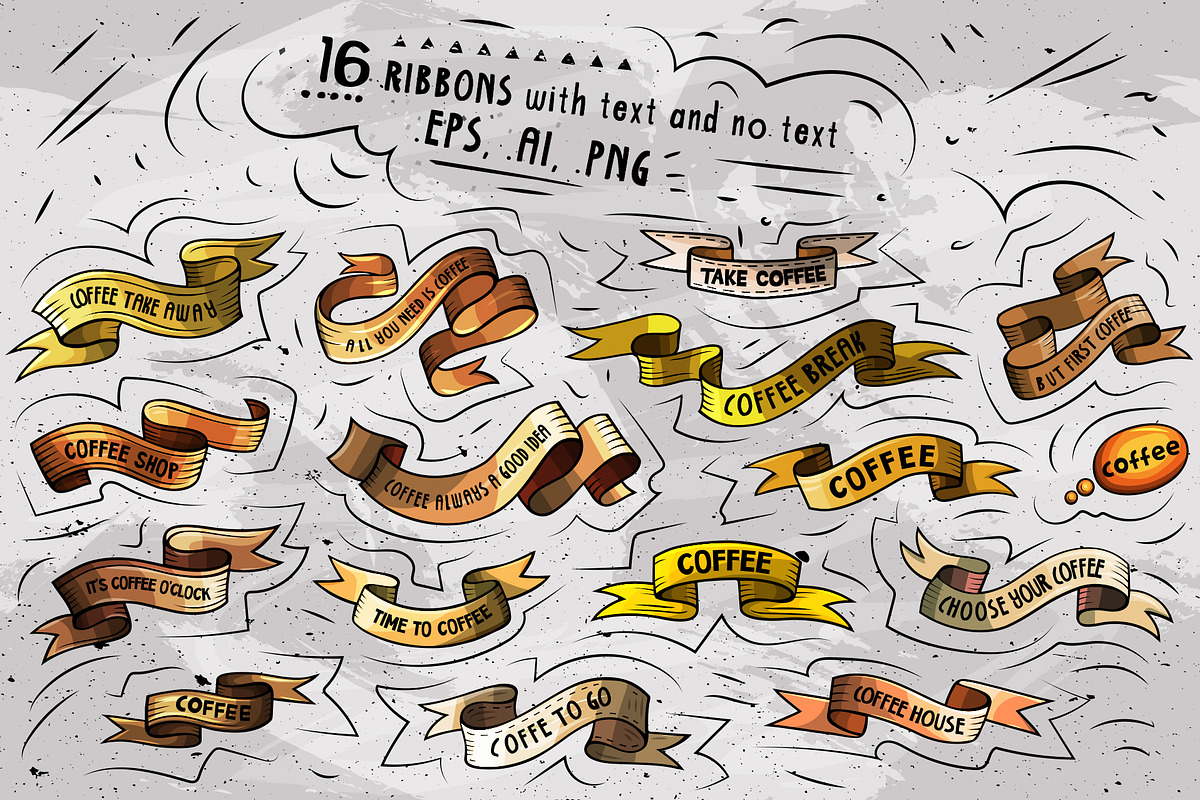 16 RIBBONS with text and no text
.EPS, .AI, .PNG
COFFEE TAKE AWAY
ALL YOU NEED IS COFFEE
TAKE COFFEE
COFFEE BREAK
BUT FIRST COFFEE
COFFEE SHOP
COFFEE ALWAYS A GOOD IDEA
COFFEE
coffee
IT'S COFFEE O'CLOCK
TIME TO COFFEE
COFFEE
CHOOSE YOUR COFFEE
COFFEE
COFFE TO GO
COFFEE HOUSE